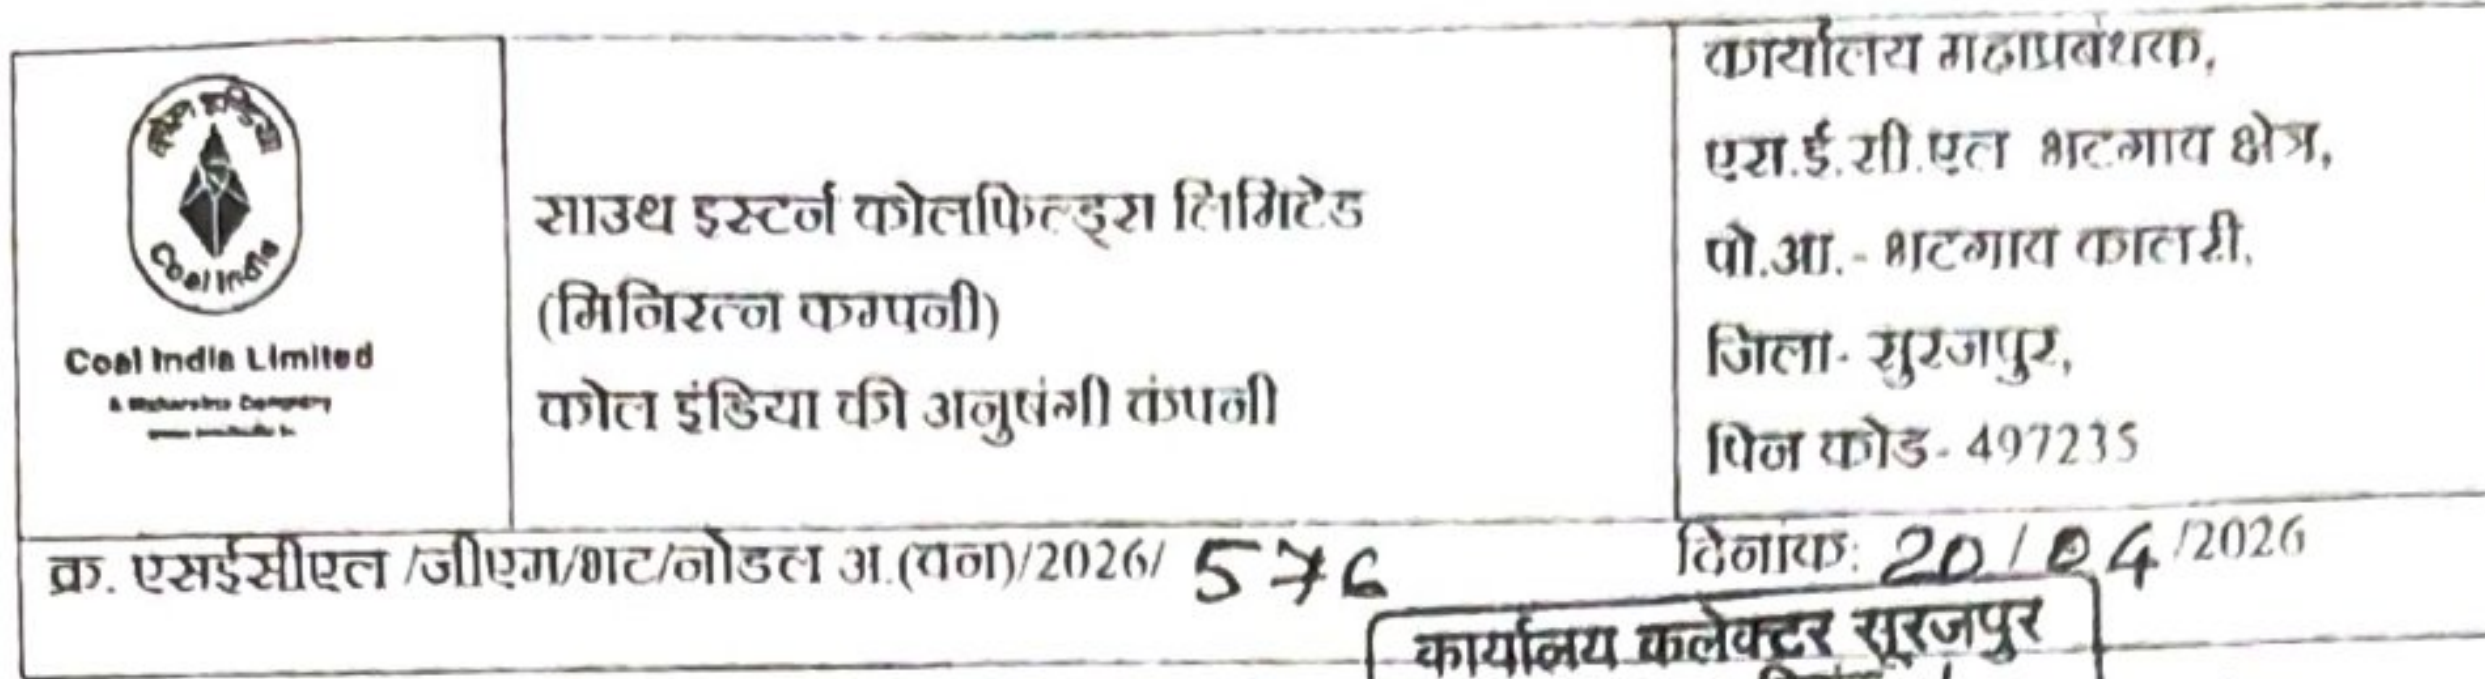 कोल इण्डिया
Coal India
Coal India Limited
A Maharatna Company
साउथ इस्टर्न कोलफिल्ड्स लिमिटेड
(मिनिरत्न कम्पनी)
कोल इंडिया की अनुषंगी कंपनी
कार्यालय महाप्रबंधक,
एस.ई.सी.एल भटगाव क्षेत्र,
पो.आ.- भटगाव कालरी,
जिला- सुरजपुर,
पिन कोड- 497235
क्र. एसईसीएल /जीएम/भट/नोडल अ.(वन)/2026/ 576
दिनांक: 20/04/2026
कार्यालय कलेक्टर सूरजपुर